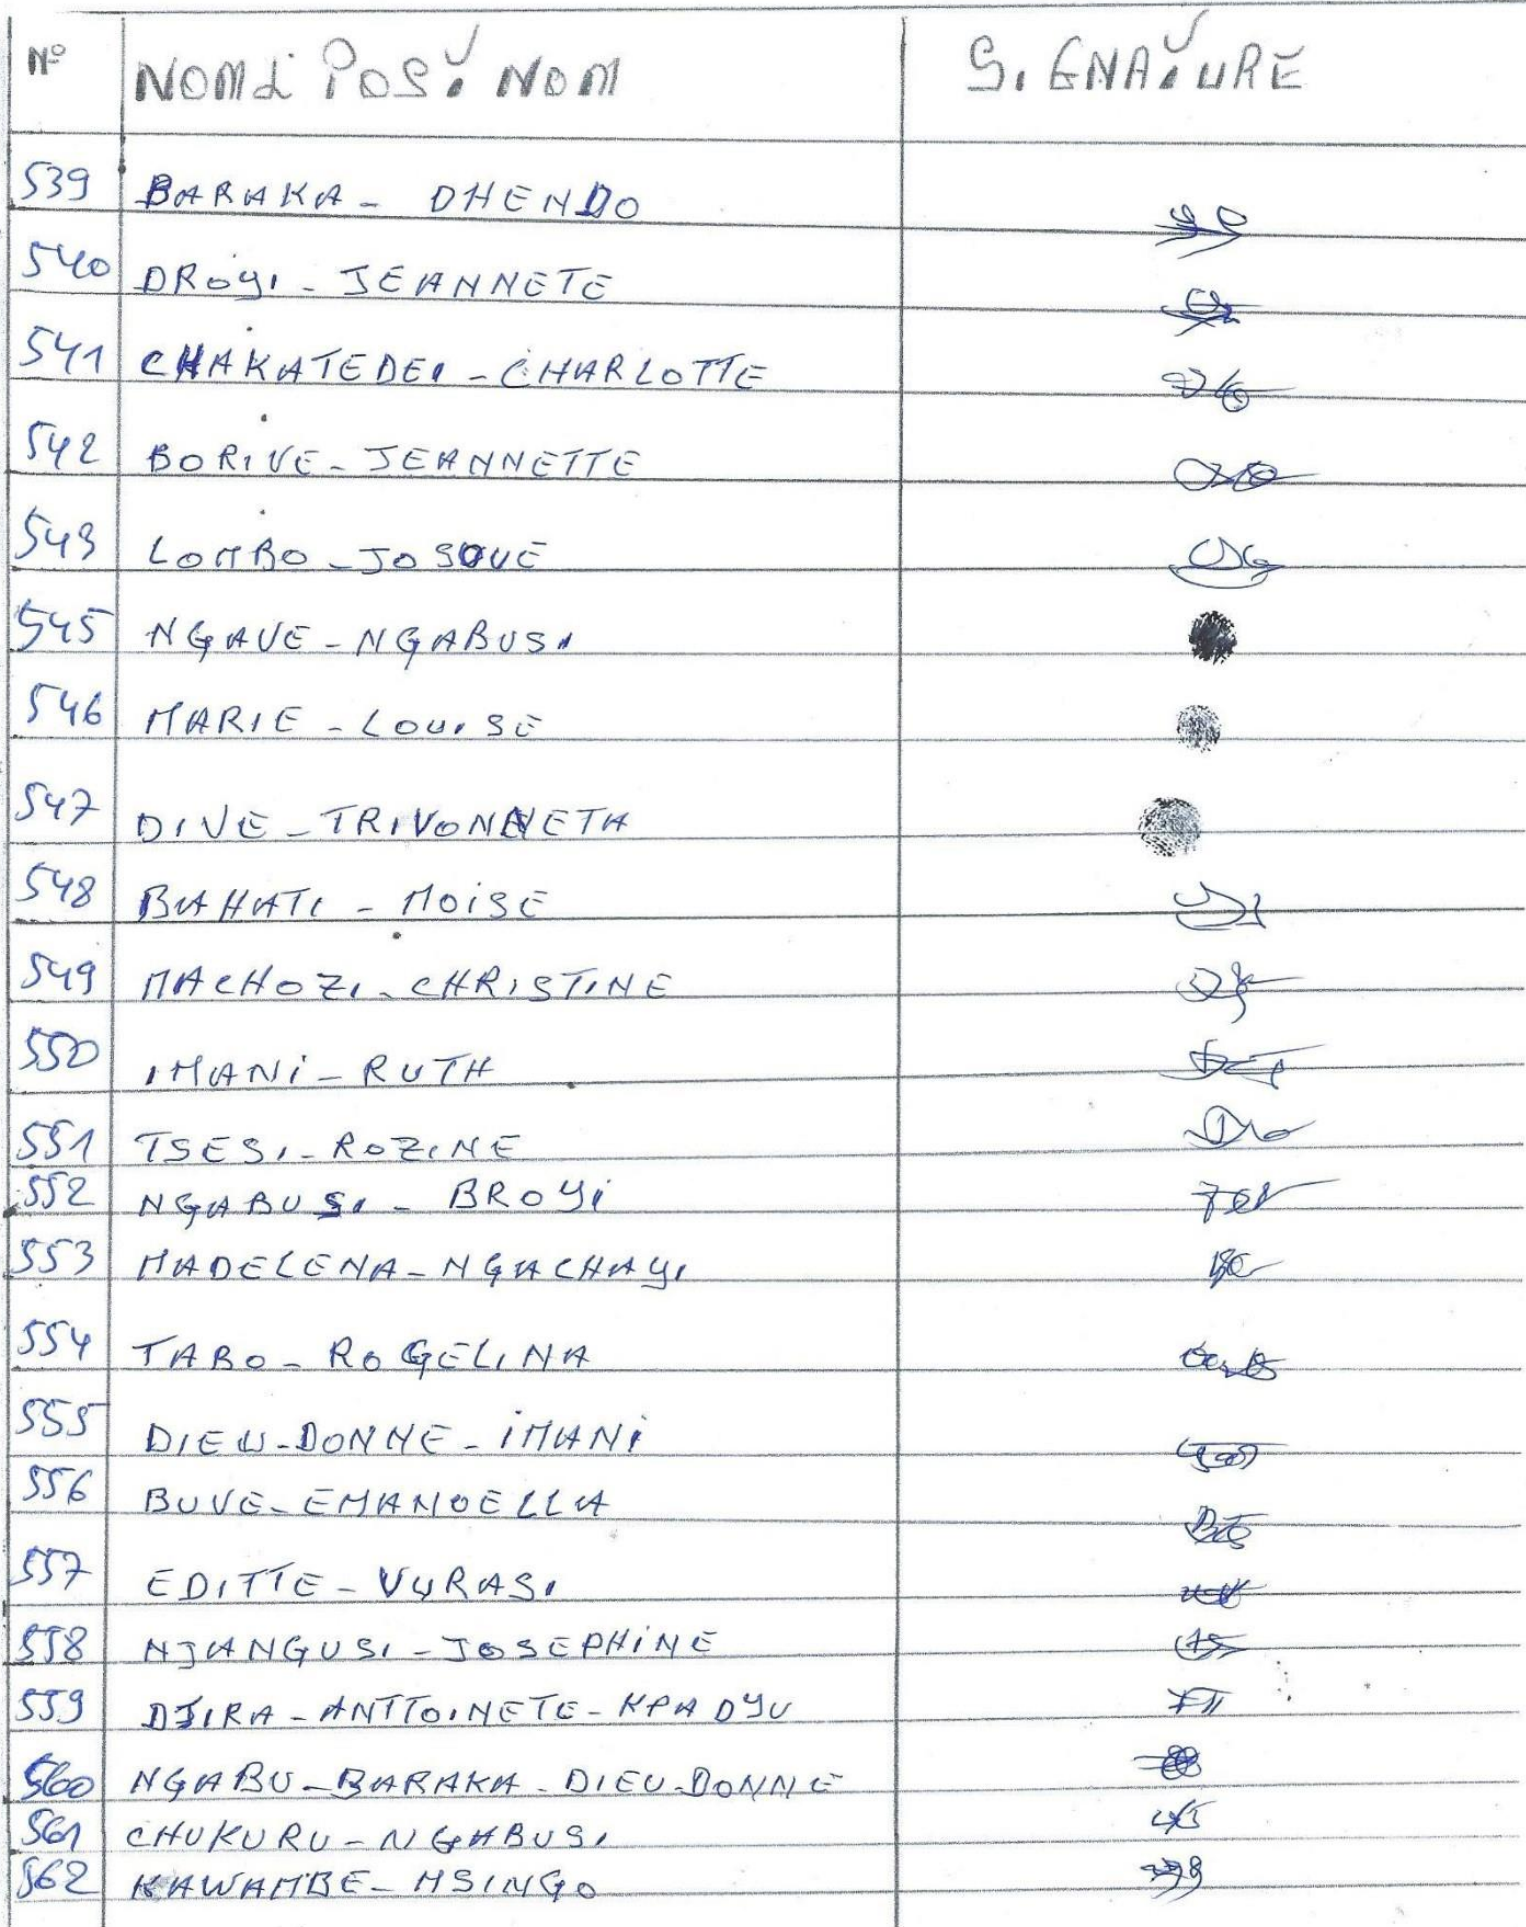 N° NOM & POST NOM SIGNATURE
539 BARAKA - DHENDO
540 DROYI - JEANNETE
541 CHAKATEDEI - CHARLOTTE
542 BORIVE - JEANNETTE
543 LOMBO - JOSOUE
545 NGAVE - NGABUSI
546 MARIE - LOUISE
547 DIVE - TRIVONNETA
548 BAHATI - MOISE
549 MACHOZI - CHRISTINE
550 IMANI - RUTH
551 TSESI - ROZINE
552 NGABUSI - BROYI
553 MADELENA - NGACHAYI
554 TABO - ROGELINA
555 DIEU-DONNE - IMANI
556 BUVE - EMANOELLA
557 EDITTE - VYRASI
558 NJANGUSI - JOSEPHINE
559 DJIRA - ANTTOINETE - KPADYU
560 NGABU - BARAKA - DIEU-DONNE
561 CHUKURU - NGABUSI
562 KAWAMBE - MSINGO